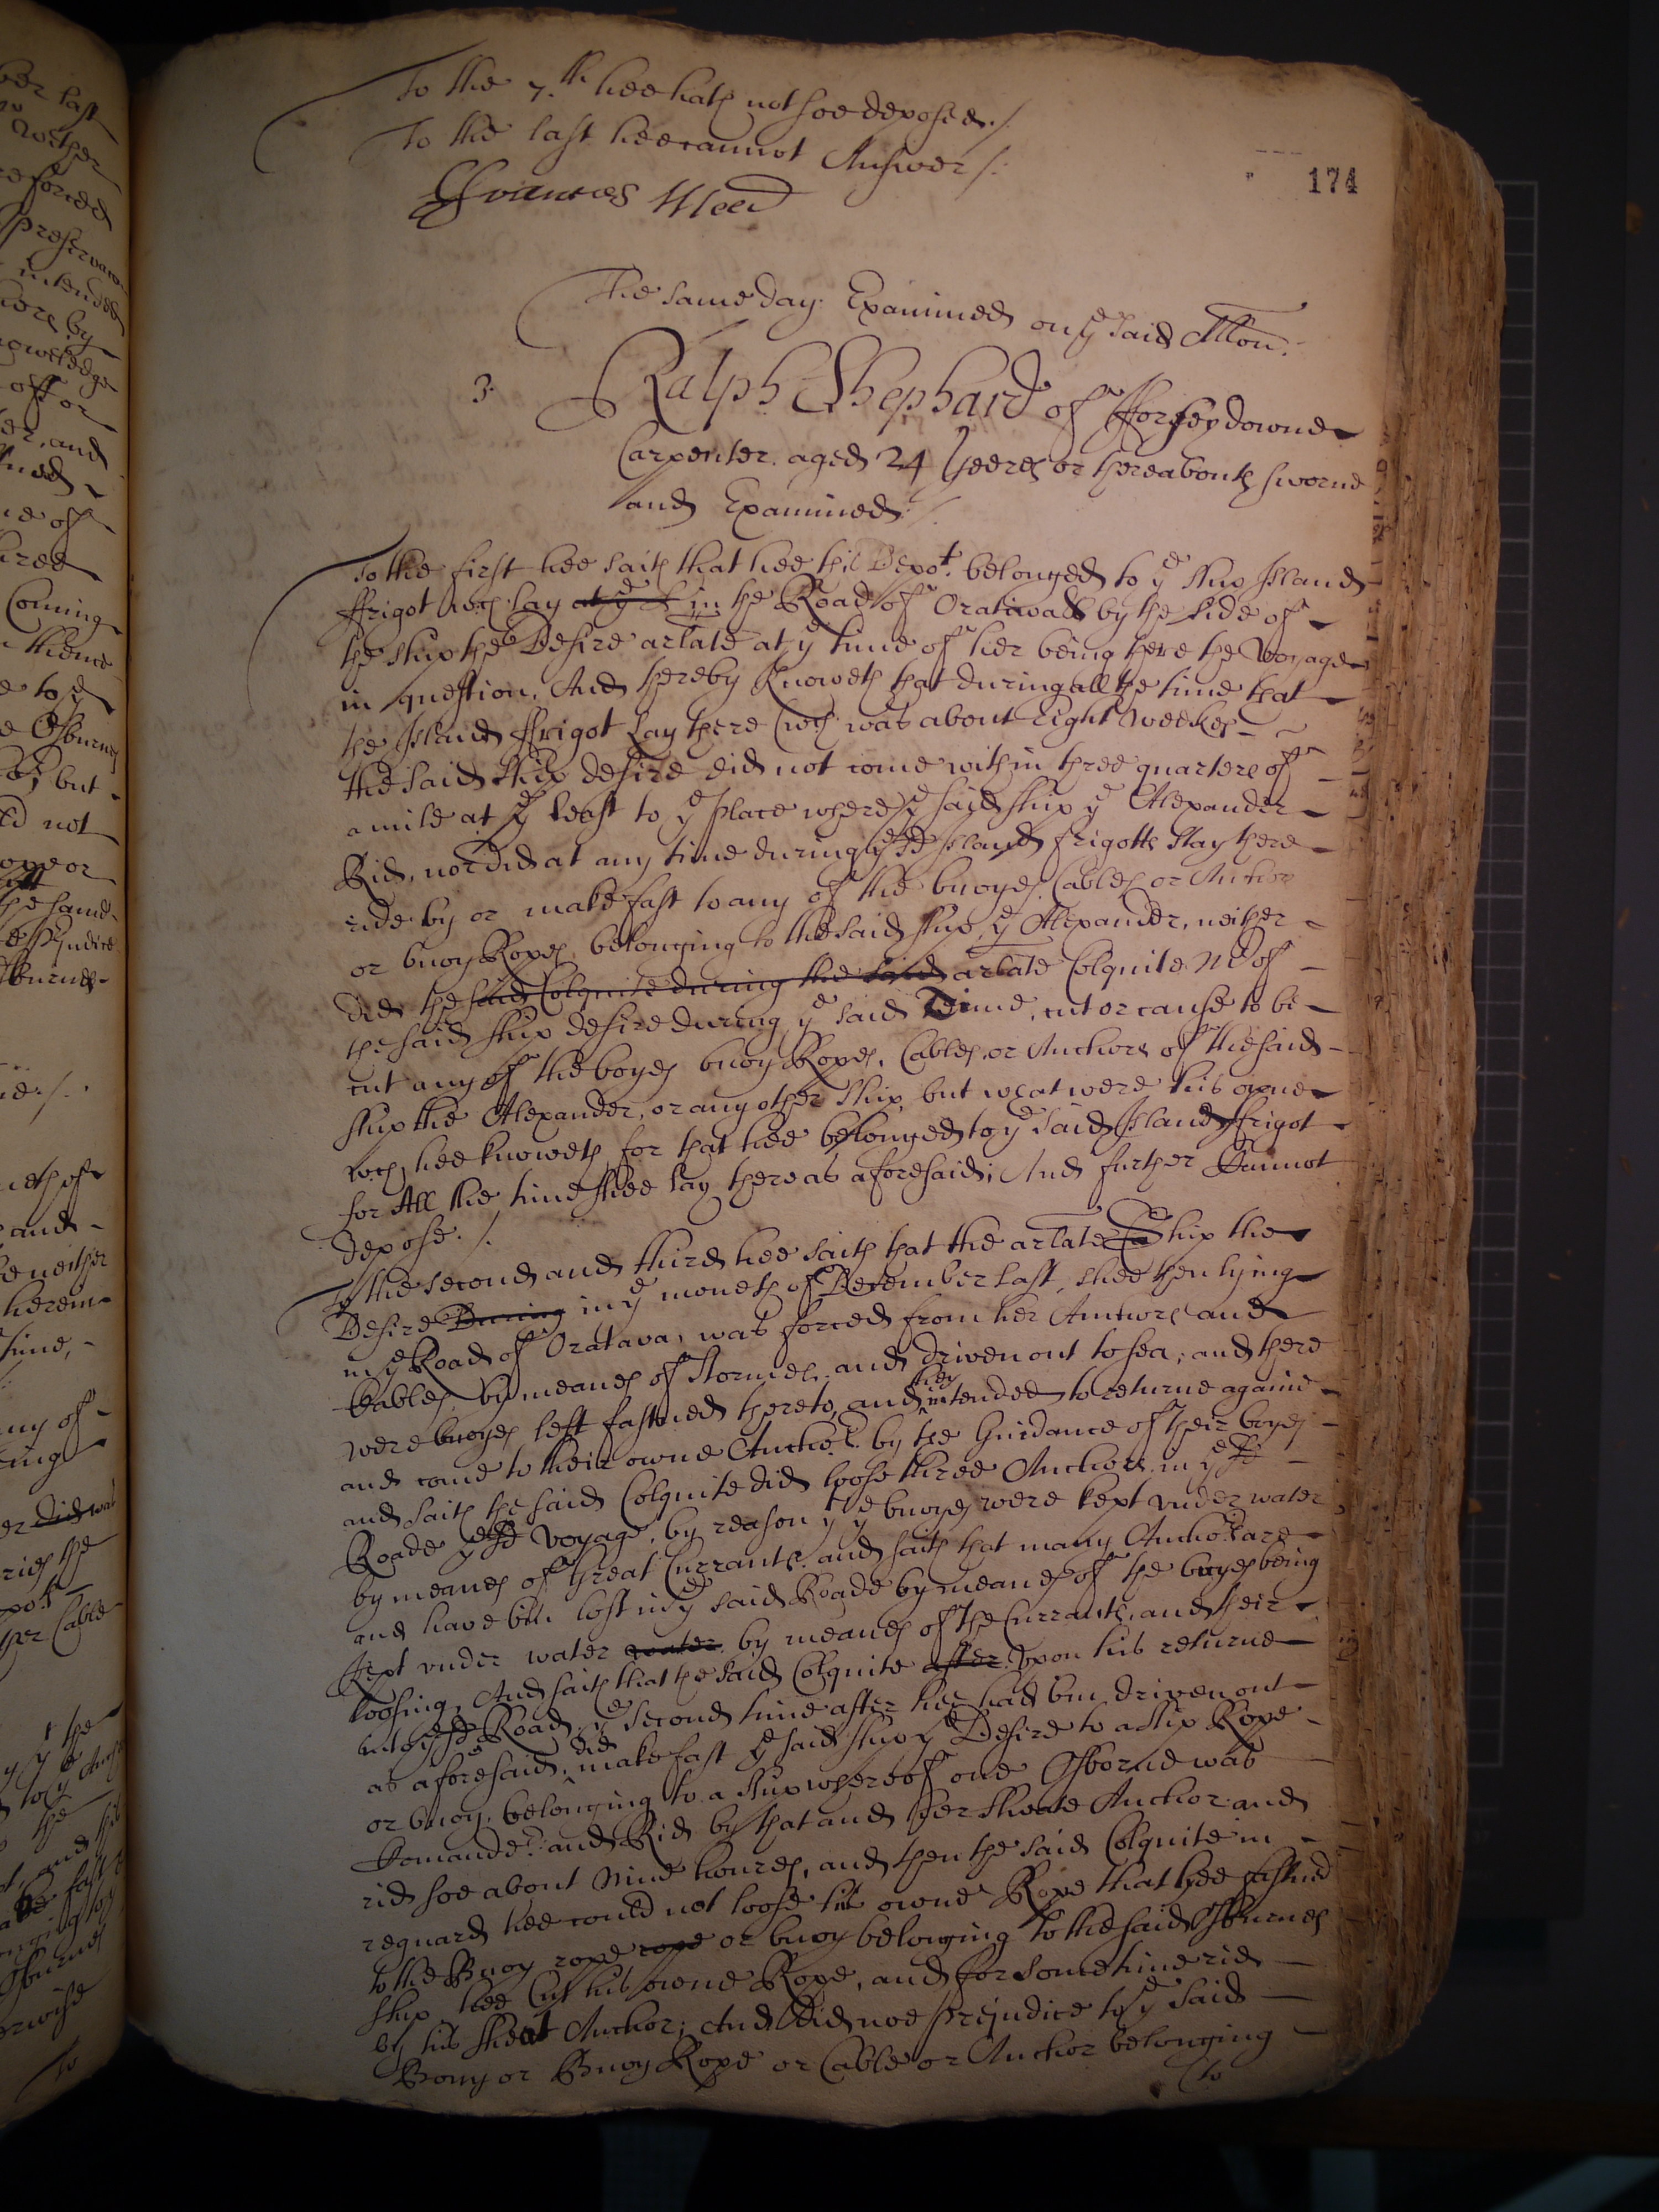 To the 7.th hee hath not soe deposed./
To the last hee cannot Answer /:
ffrances Meed
174
The same day: Examined on ye said Allon.
3. Ralph Shephard of Horseydowne
Carpenter aged 24 yeeres or thereabouts sworne
and Examined:/
To the first hee saith that hee this Depot. belonged to ye ship Island
ffrigot wch lay at ye in the Road of Oratawa by the side of
the ship the Desire arlate at ye time of her being there the voyage
in question, And thereby knoweth that during all the time that
the Island ffrigot Lay there (wch was about eight weekes
the said ship desire did not come within three quarters of
a mile at ye least to ye place where ye said ship ye Alexander
Rid, nor did at any time during ye sd Island frigotts stay there
ride by or make fast to any of the buoyes Cables or Anchors
or buoy Ropes belonging to the said ship ye Alexander, neither
did the said Colquite during the said arlate Colquite Mr of
the said ship desire during ye said Time, cut or cause to be
cut any of the boyes buoy Ropes, Cables or Anchors of the said
ship the Alexander, or any other ship but what were his owne
wch hee knoweth for that hee belonged to ye said Island ffrigot
for All the time shee lay there as aforesaid; And further Cannot
depose./
To the second and third hee saith that the arlate Ship the
Desire During in ye moneth of December last, shee then lying
in ye Road of Oratava, was forced from her Anchors and
Cables by meanes of stormes and driven out to sea; and there
were buoyes left fastned thereto, and they intended to returne againe
and come to their owne Anchors by the Guidance of their boyes
and saith the said Colquite did loose three Anchors in ye sd
Roade ye sd voyage, by reason yt ye buoyes were kept under water
by meanes of great Currants, and saith that many Anchors are
and have bin lost in ye said Roade by meanes of the buoyes being
kept under water water by meanes of the Currants, and their
loosing, And saith that the said Colquite after upon his returne
into ye sd Road ye second time after hee had bin driven out
as aforesaid, did make fast ye said ship ye Desire to a ship Rope
or buoy belonging to a ship whereof one Osborne was
Comander and Rid by that and her sheate Anchor and
rid soe about nine houres, and then the said Colquite in
reguard hee could not loose his owne Rope that hee fastned
to the Buoy rope rope or buoy belonging to the said Osburnes
ship hee Cut his owne Rope, and for some time rid
by his sheat Anchor; And did noe prejudice to ye said
Bouy or Buoy Rope or Cable or Anchor belonging
to